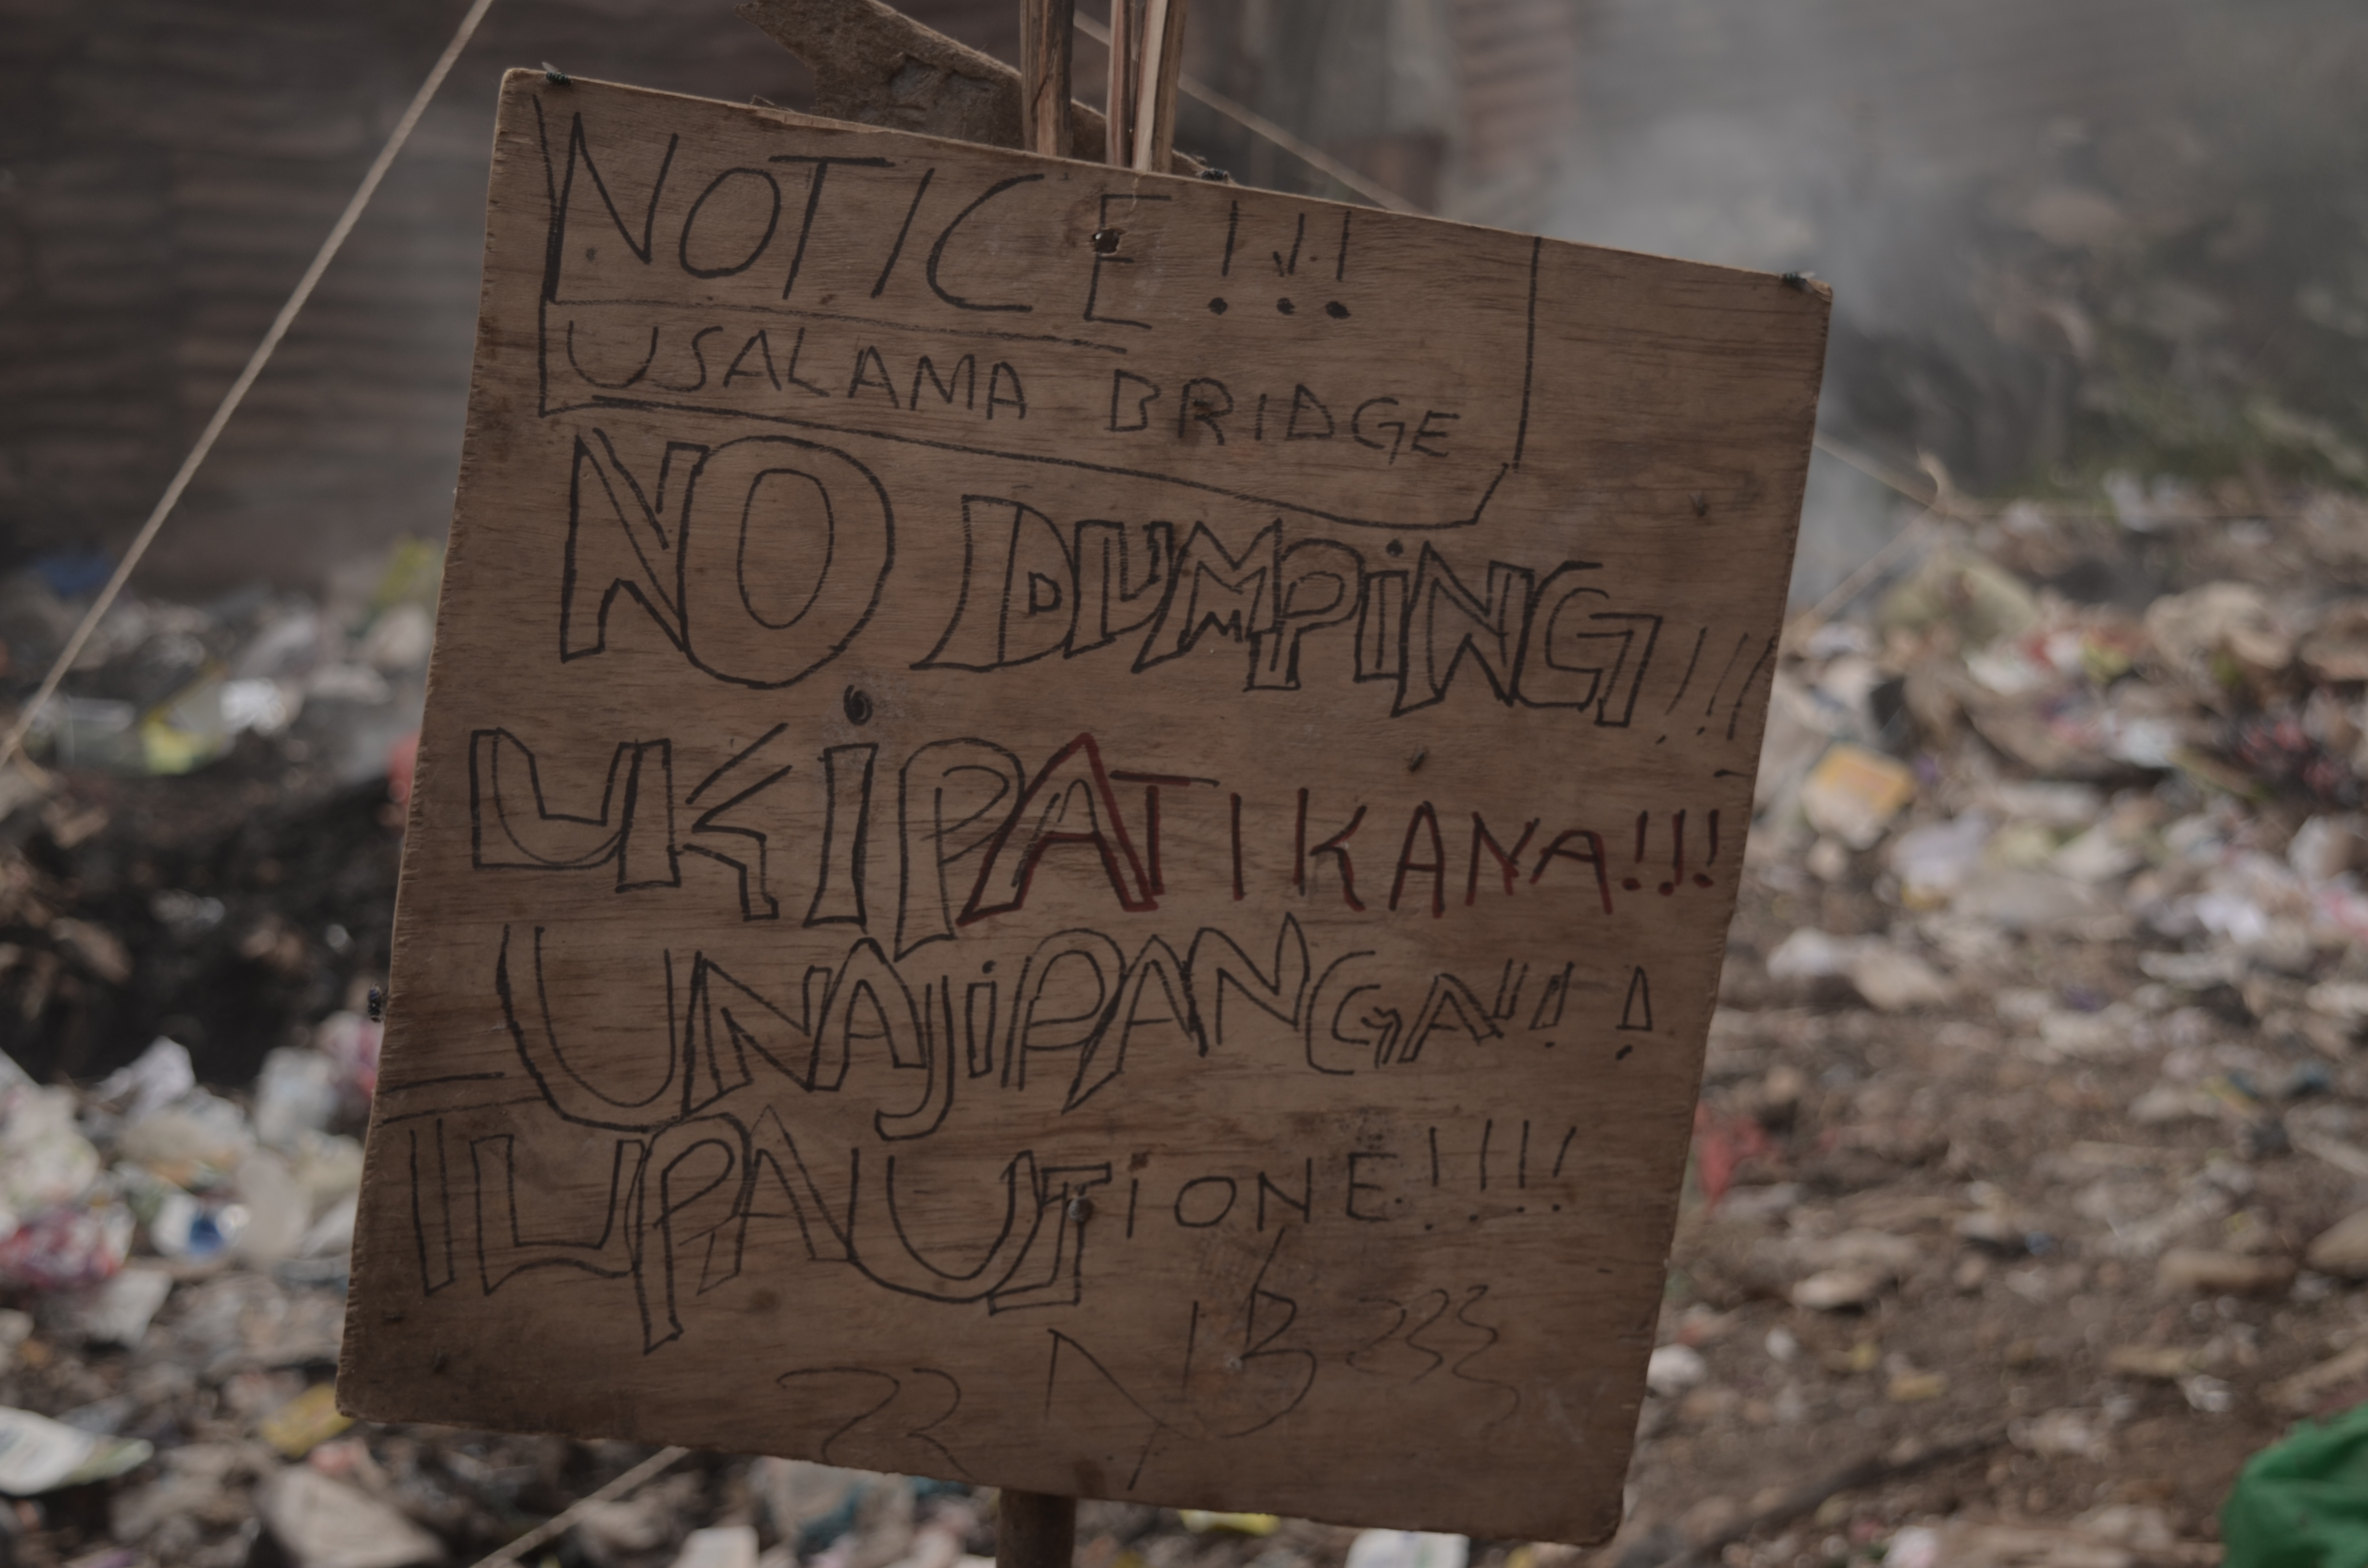 NOTICE!!!
USALAMA BRIDGE
NO DUMPiNG!!!
UKiPATIKANA!!!
UNAJiPANGA!!!
TUPAUSiONE!!!!
NB